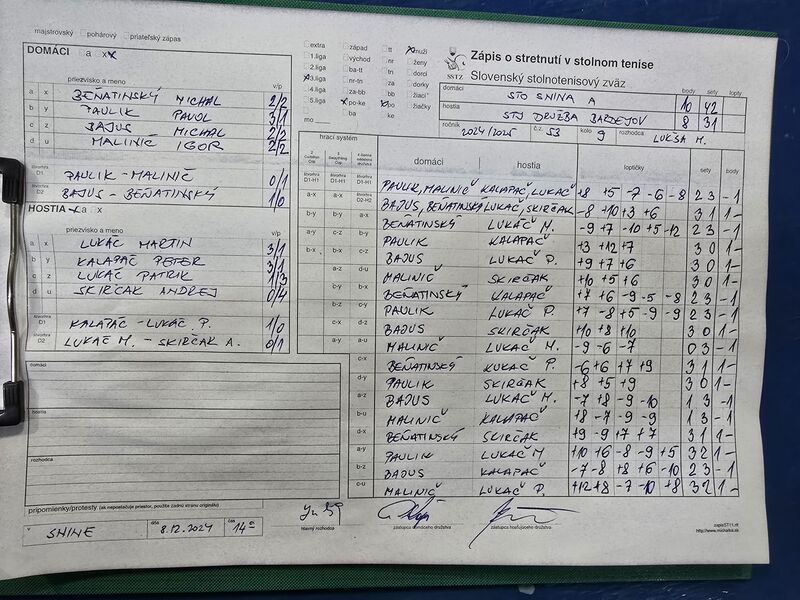 majstrovský pohárový priateľský zápas
DOMÁCI a x
priezvisko a meno v/p
a x BEŇATINSKÝ MICHAL 2/2
b y PAULIK PAVOL 3/1
c z BAJUS MICHAL 2/2
d u MALINIČ IGOR 2/2
štvorhra D1 PAULIK - MALINIČ 0/1
D2 BAJUS - BEŇATINSKÝ 1/0
HOSTIA a x
priezvisko a meno v/p
a x LUKÁČ MARTIN 3/1
b y KALAPÁČ PETER 3/1
c z LUKÁČ PATRIK 1/3
d u SKIRČAK ANDREJ 0/4
štvorhra D1 KALAPÁČ - LUKÁČ P. 1/0
štvorhra D2 LUKÁČ M. - SKIRČAK A. 0/1
domáci
hostia
rozhodca
pripomienky/protesty (ak nepostačuje priestor, použite zadnú stranu originálu)
v SNINE dňa 8.12.2024 čas 14
hlavný rozhodca
zástupca domáceho družstva
zástupca hosťujúceho družstva
extra západ tt muži
1.liga východ nr ženy
2.liga ba-tt tn dorci
3.liga nr-tn za dorky
4.liga za-bb bb žiaci
5.liga po-ke po žiačky
mo ba ke
SSTZ
Zápis o stretnutí v stolnom tenise
Slovenský stolnotenisový zväz
body sety lopty
domáci STO SNINA A 10 42
hostia STJ DRUŽBA BARDEJOV 8 31
ročník 2024/2025 č.z. 53 kolo 9 rozhodca LUKŠA M.
hrací systém
domáci hostia loptičky sety body
PAULIK, MALINIČ KALAPAČ, LUKAČ +8 +5 -7 -6 -8 2 3 -1
BAJUS, BEŇATINSKÝ LUKÁČ, SKIRČAK -8 +10 +3 +6 3 1 1-
BEŇATINSKÝ LUKÁČ M. -9 +7 -10 +5 -12 2 3 -1
PAULIK KALAPAČ +3 +12 +7 3 0 1-
BAJUS LUKAČ P. +9 +7 +6 3 0 1-
MALINIČ SKIRČAK +10 +5 +6 3 0 1-
BEŇATINSKÝ KALAPAČ +7 +6 -9 -5 -8 2 3 -1
PAULIK LUKAČ P. +7 -8 +5 -9 -9 2 3 -1
BAJUS SKIRČAK +10 +8 +10 3 0 1-
MALINIČ LUKAČ M. -9 -6 -7 0 3 -1
BEŇATINSKÝ LUKAČ P. -6 +6 +7 +9 3 1 1-
PAULIK SKIRČAK +8 +5 +9 3 0 1-
BAJUS LUKAČ M. -7 +8 -9 -10 1 3 -1
MALINIČ KALAPAČ +8 -7 -9 -9 1 3 -1
BEŇATINSKÝ SKIRČAK +9 -9 +7 +7 3 1 1-
PAULIK LUKAČ M +10 +6 -8 -9 +5 3 2 1-
BAJUS KALAPAČ -7 -8 +8 +6 -10 2 3 -1
MALINIČ LUKAČ P. +12 +8 -7 -10 +8 3 2 1-
zapisST11.rtf
http://www.michalka.sk